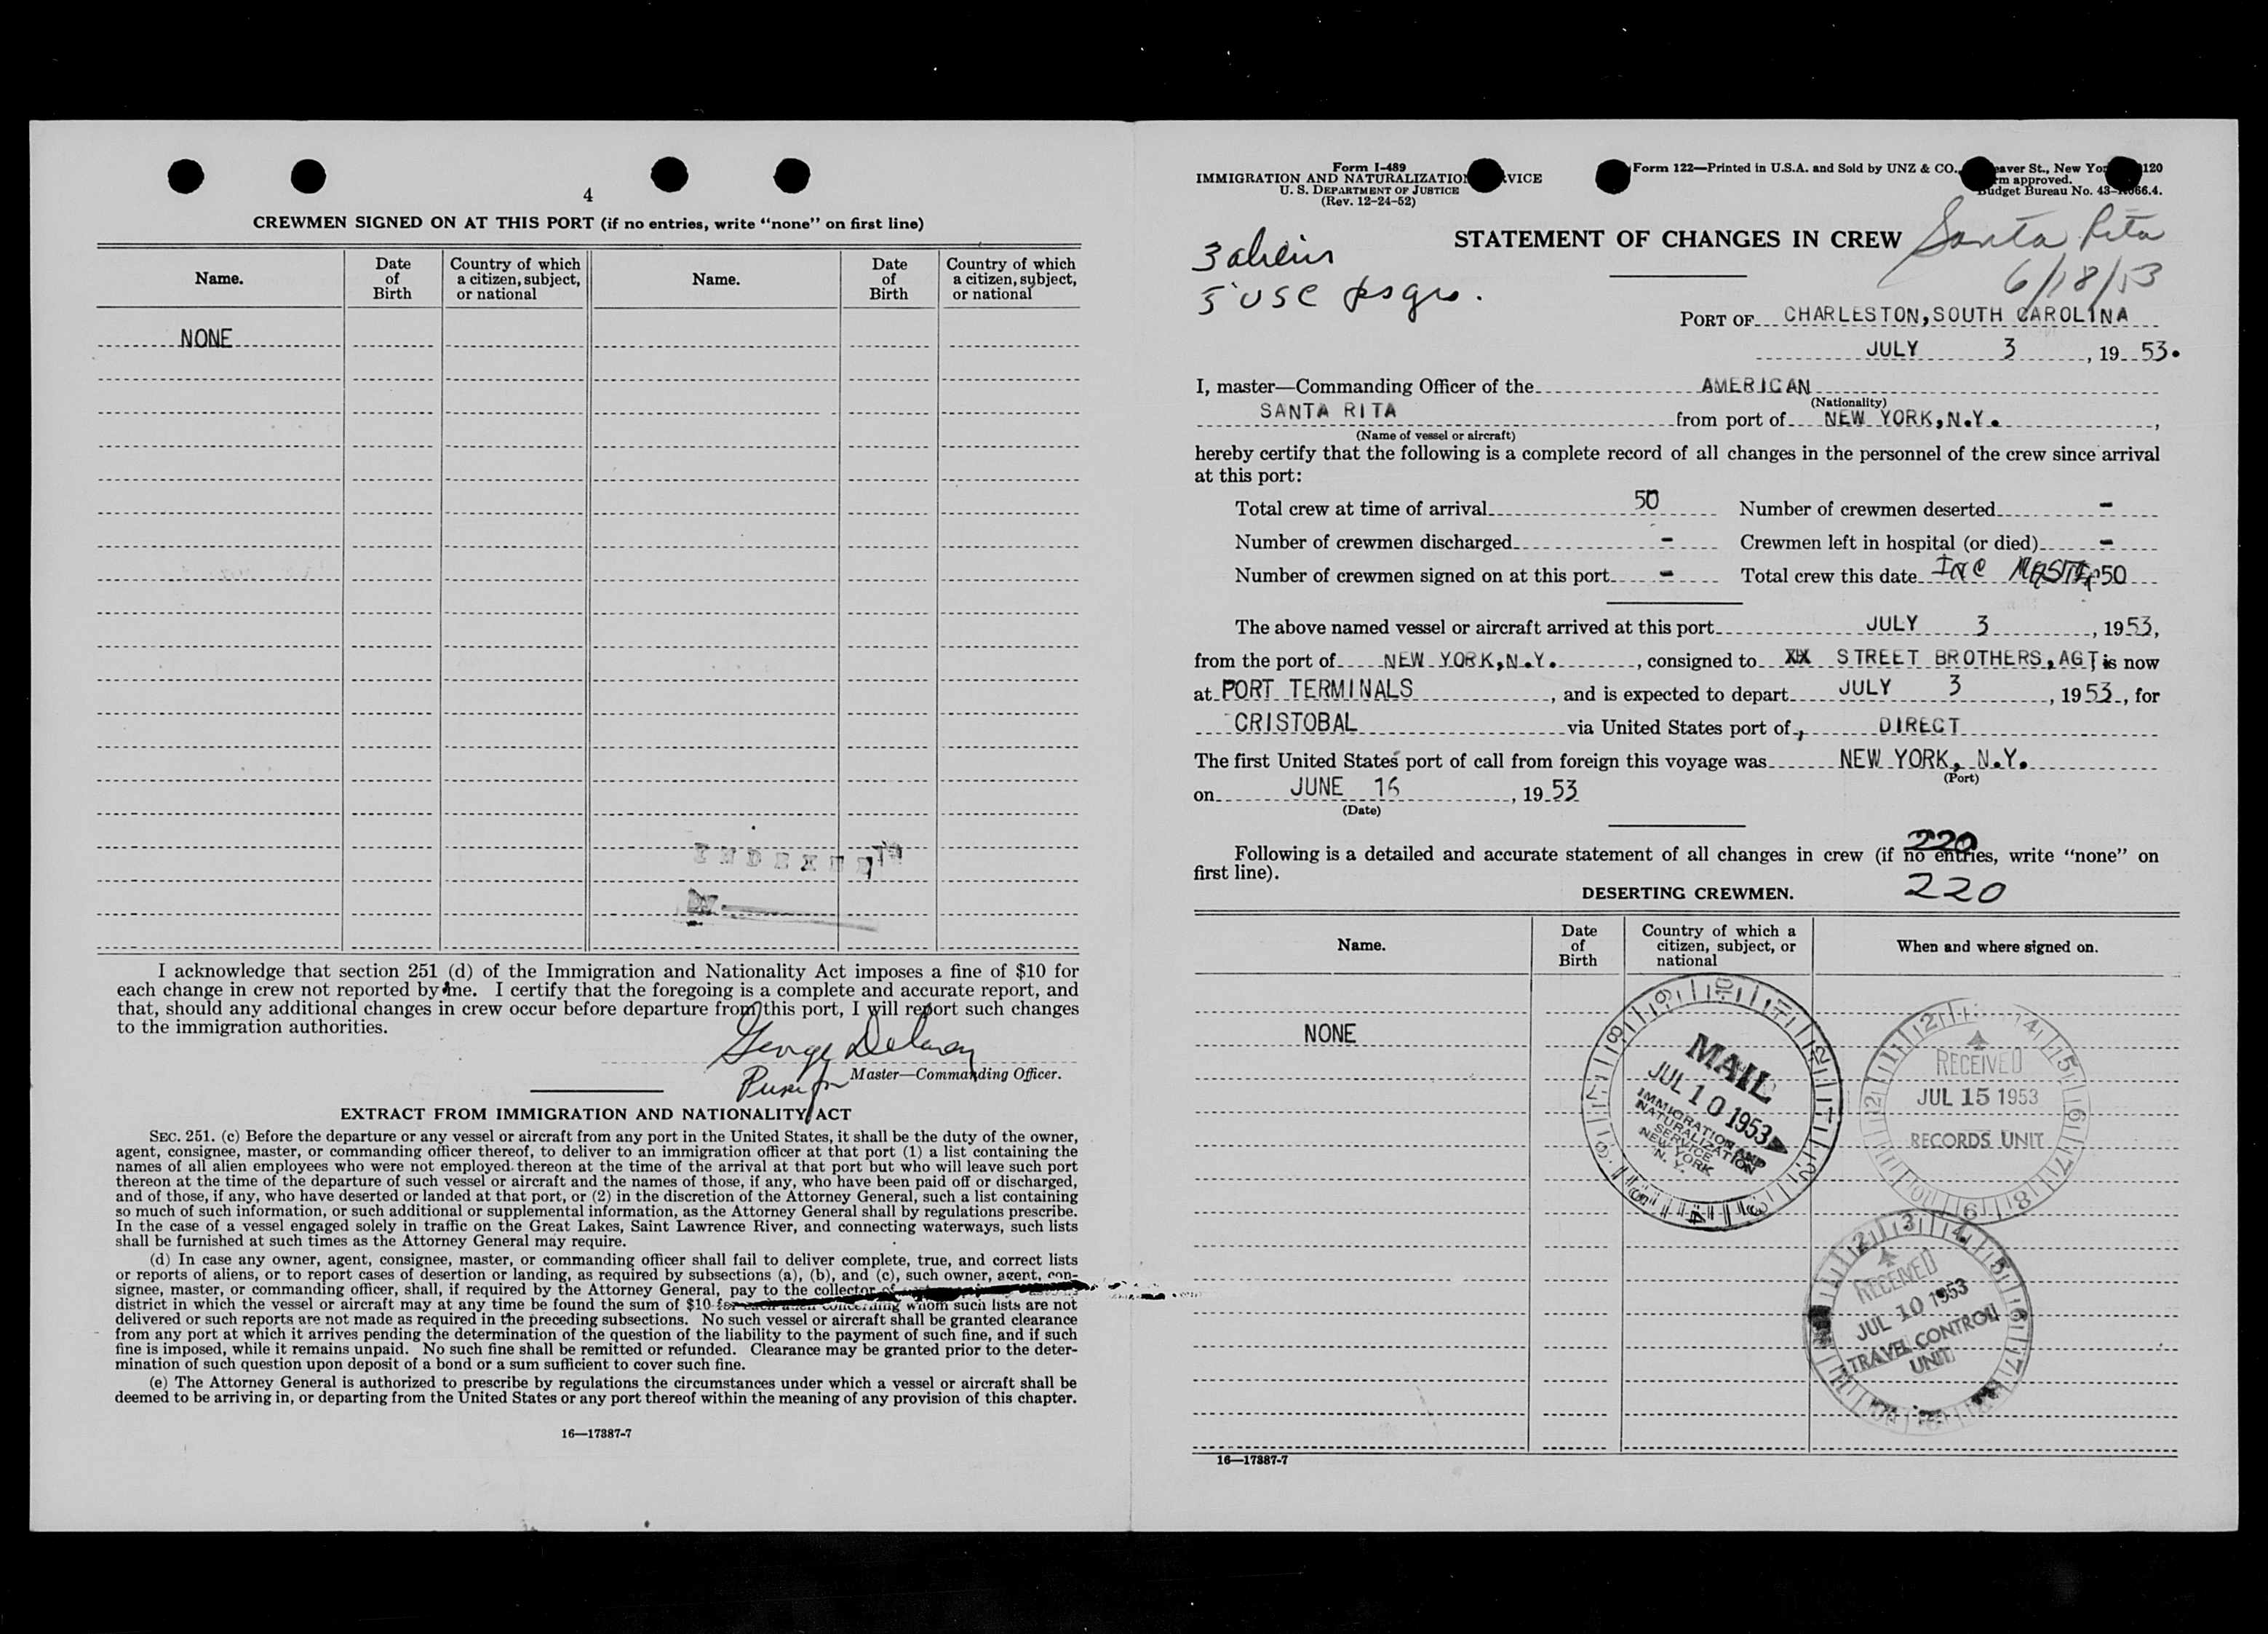 4
CREWMEN SIGNED ON AT THIS PORT (if no entries, write “none” on first line)
Name. Date of Birth Country of which a citizen, subject, or national Name. Date of Birth Country of which a citizen, subject, or national
NONE
INDEXED
I acknowledge that section 251 (d) of the Immigration and Nationality Act imposes a fine of $10 for
each change in crew not reported by me. I certify that the foregoing is a complete and accurate report, and
that, should any additional changes in crew occur before departure from this port, I will report such changes
to the immigration authorities.
George
Master—Commanding Officer.
EXTRACT FROM IMMIGRATION AND NATIONALITY ACT
SEC. 251. (c) Before the departure or any vessel or aircraft from any port in the United States, it shall be the duty of the owner,
agent, consignee, master, or commanding officer thereof, to deliver to an immigration officer at that port (1) a list containing the
names of all alien employees who were not employed thereon at the time of the arrival at that port but who will leave such port
thereon at the time of the departure of such vessel or aircraft and the names of those, if any, who have been paid off or discharged,
and of those, if any, who have deserted or landed at that port, or (2) in the discretion of the Attorney General, such a list containing
so much of such information, or such additional or supplemental information, as the Attorney General shall by regulations prescribe.
In the case of a vessel engaged solely in traffic on the Great Lakes, Saint Lawrence River, and connecting waterways, such lists
shall be furnished at such times as the Attorney General may require.
(d) In case any owner, agent, consignee, master, or commanding officer shall fail to deliver complete, true, and correct lists
or reports of aliens, or to report cases of desertion or landing, as required by subsections (a), (b), and (c), such owner, agent, con-
signee, master, or commanding officer, shall, if required by the Attorney General, pay to the collector of
district in which the vessel or aircraft may at any time be found the sum of $10 for each alien concerning whom such lists are not
delivered or such reports are not made as required in the preceding subsections. No such vessel or aircraft shall be granted clearance
from any port at which it arrives pending the determination of the question of the liability to the payment of such fine, and if such
fine is imposed, while it remains unpaid. No such fine shall be remitted or refunded. Clearance may be granted prior to the deter-
mination of such question upon deposit of a bond or a sum sufficient to cover such fine.
(e) The Attorney General is authorized to prescribe by regulations the circumstances under which a vessel or aircraft shall be
deemed to be arriving in, or departing from the United States or any port thereof within the meaning of any provision of this chapter.
16—17387-7
Form I-489
IMMIGRATION AND NATURALIZATION VICE
U. S. DEPARTMENT OF JUSTICE
(Rev. 12-24-52)
Form 122—Printed in U.S.A. and Sold by UNZ & CO., eaver St., New Yor 120
m approved.
Budget Bureau No. 43- 066.4.
STATEMENT OF CHANGES IN CREW
Santa Rita
6/18/53
3
5 USC psgrs.
PORT OF CHARLESTON, SOUTH CAROLINA
JULY 3, 1953.
I, master—Commanding Officer of the AMERICAN
(Nationality)
SANTA RITA from port of NEW YORK, N.Y.,
(Name of vessel or aircraft)
hereby certify that the following is a complete record of all changes in the personnel of the crew since arrival
at this port:
Total crew at time of arrival 50 Number of crewmen deserted -
Number of crewmen discharged - Crewmen left in hospital (or died) -
Number of crewmen signed on at this port - Total crew this date INC MASTER 50
The above named vessel or aircraft arrived at this port JULY 3, 1953,
from the port of NEW YORK, N.Y., consigned to STREET BROTHERS, AGT is now
at PORT TERMINALS, and is expected to depart JULY 3, 1953, for
CRISTOBAL via United States port of, DIRECT
The first United States port of call from foreign this voyage was NEW YORK, N.Y.
(Port)
on JUNE 16, 1953
(Date)
220
Following is a detailed and accurate statement of all changes in crew (if no entries, write “none” on
first line).
DESERTING CREWMEN. 220
Name. Date of Birth Country of which a citizen, subject, or national When and where signed on.
NONE
MAIL
JUL 10 1953
IMMIGRATION AND
NATURALIZATION
SERVICE
NEW YORK
N. Y.
RECEIVED
JUL 15 1953
RECORDS UNIT
RECEIVED
JUL 10 1953
TRAVEL CONTROL
UNIT
16—17387-7